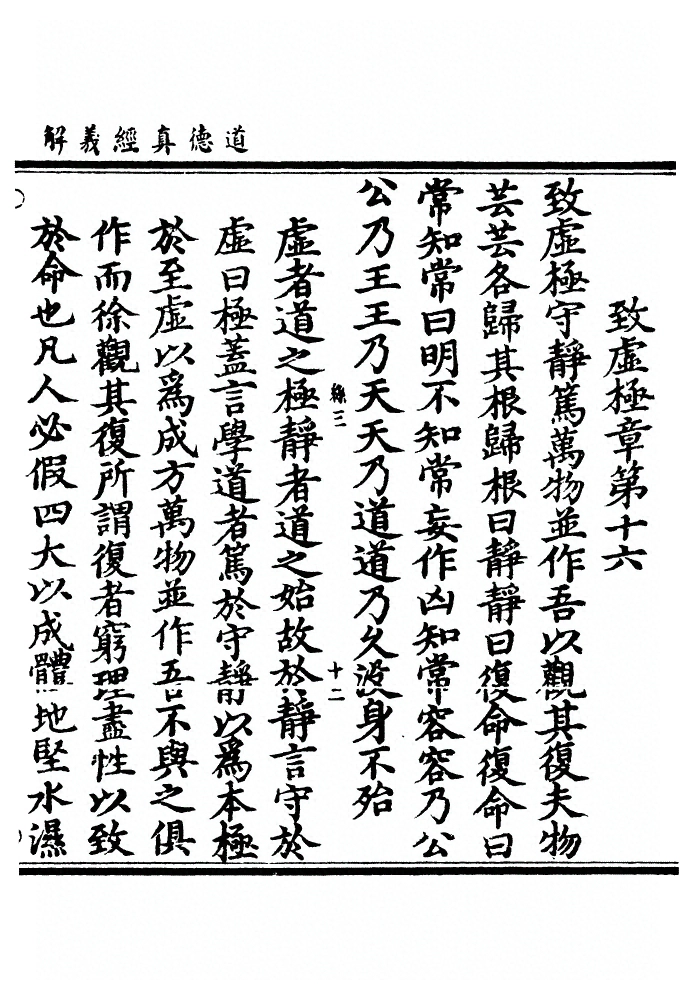 道德真經義解
致虛極章第十六
致虛極守靜篤萬物並作吾以觀其復夫物
芸芸各歸其根歸根曰靜靜曰復命復命曰
常知常曰明不知常妄作凶知常容容乃公
公乃王王乃天天乃道道乃久沒身不殆
絲三
十二
虛者道之極靜者道之始故於靜言守於
虛曰極蓋言學道者篤於守靜以為本極
於至虛以爲成方萬物並作吾不與之俱
作而徐觀其復所謂復者窮理盡性以致
於命也凡人必假四大以成體地堅水濕